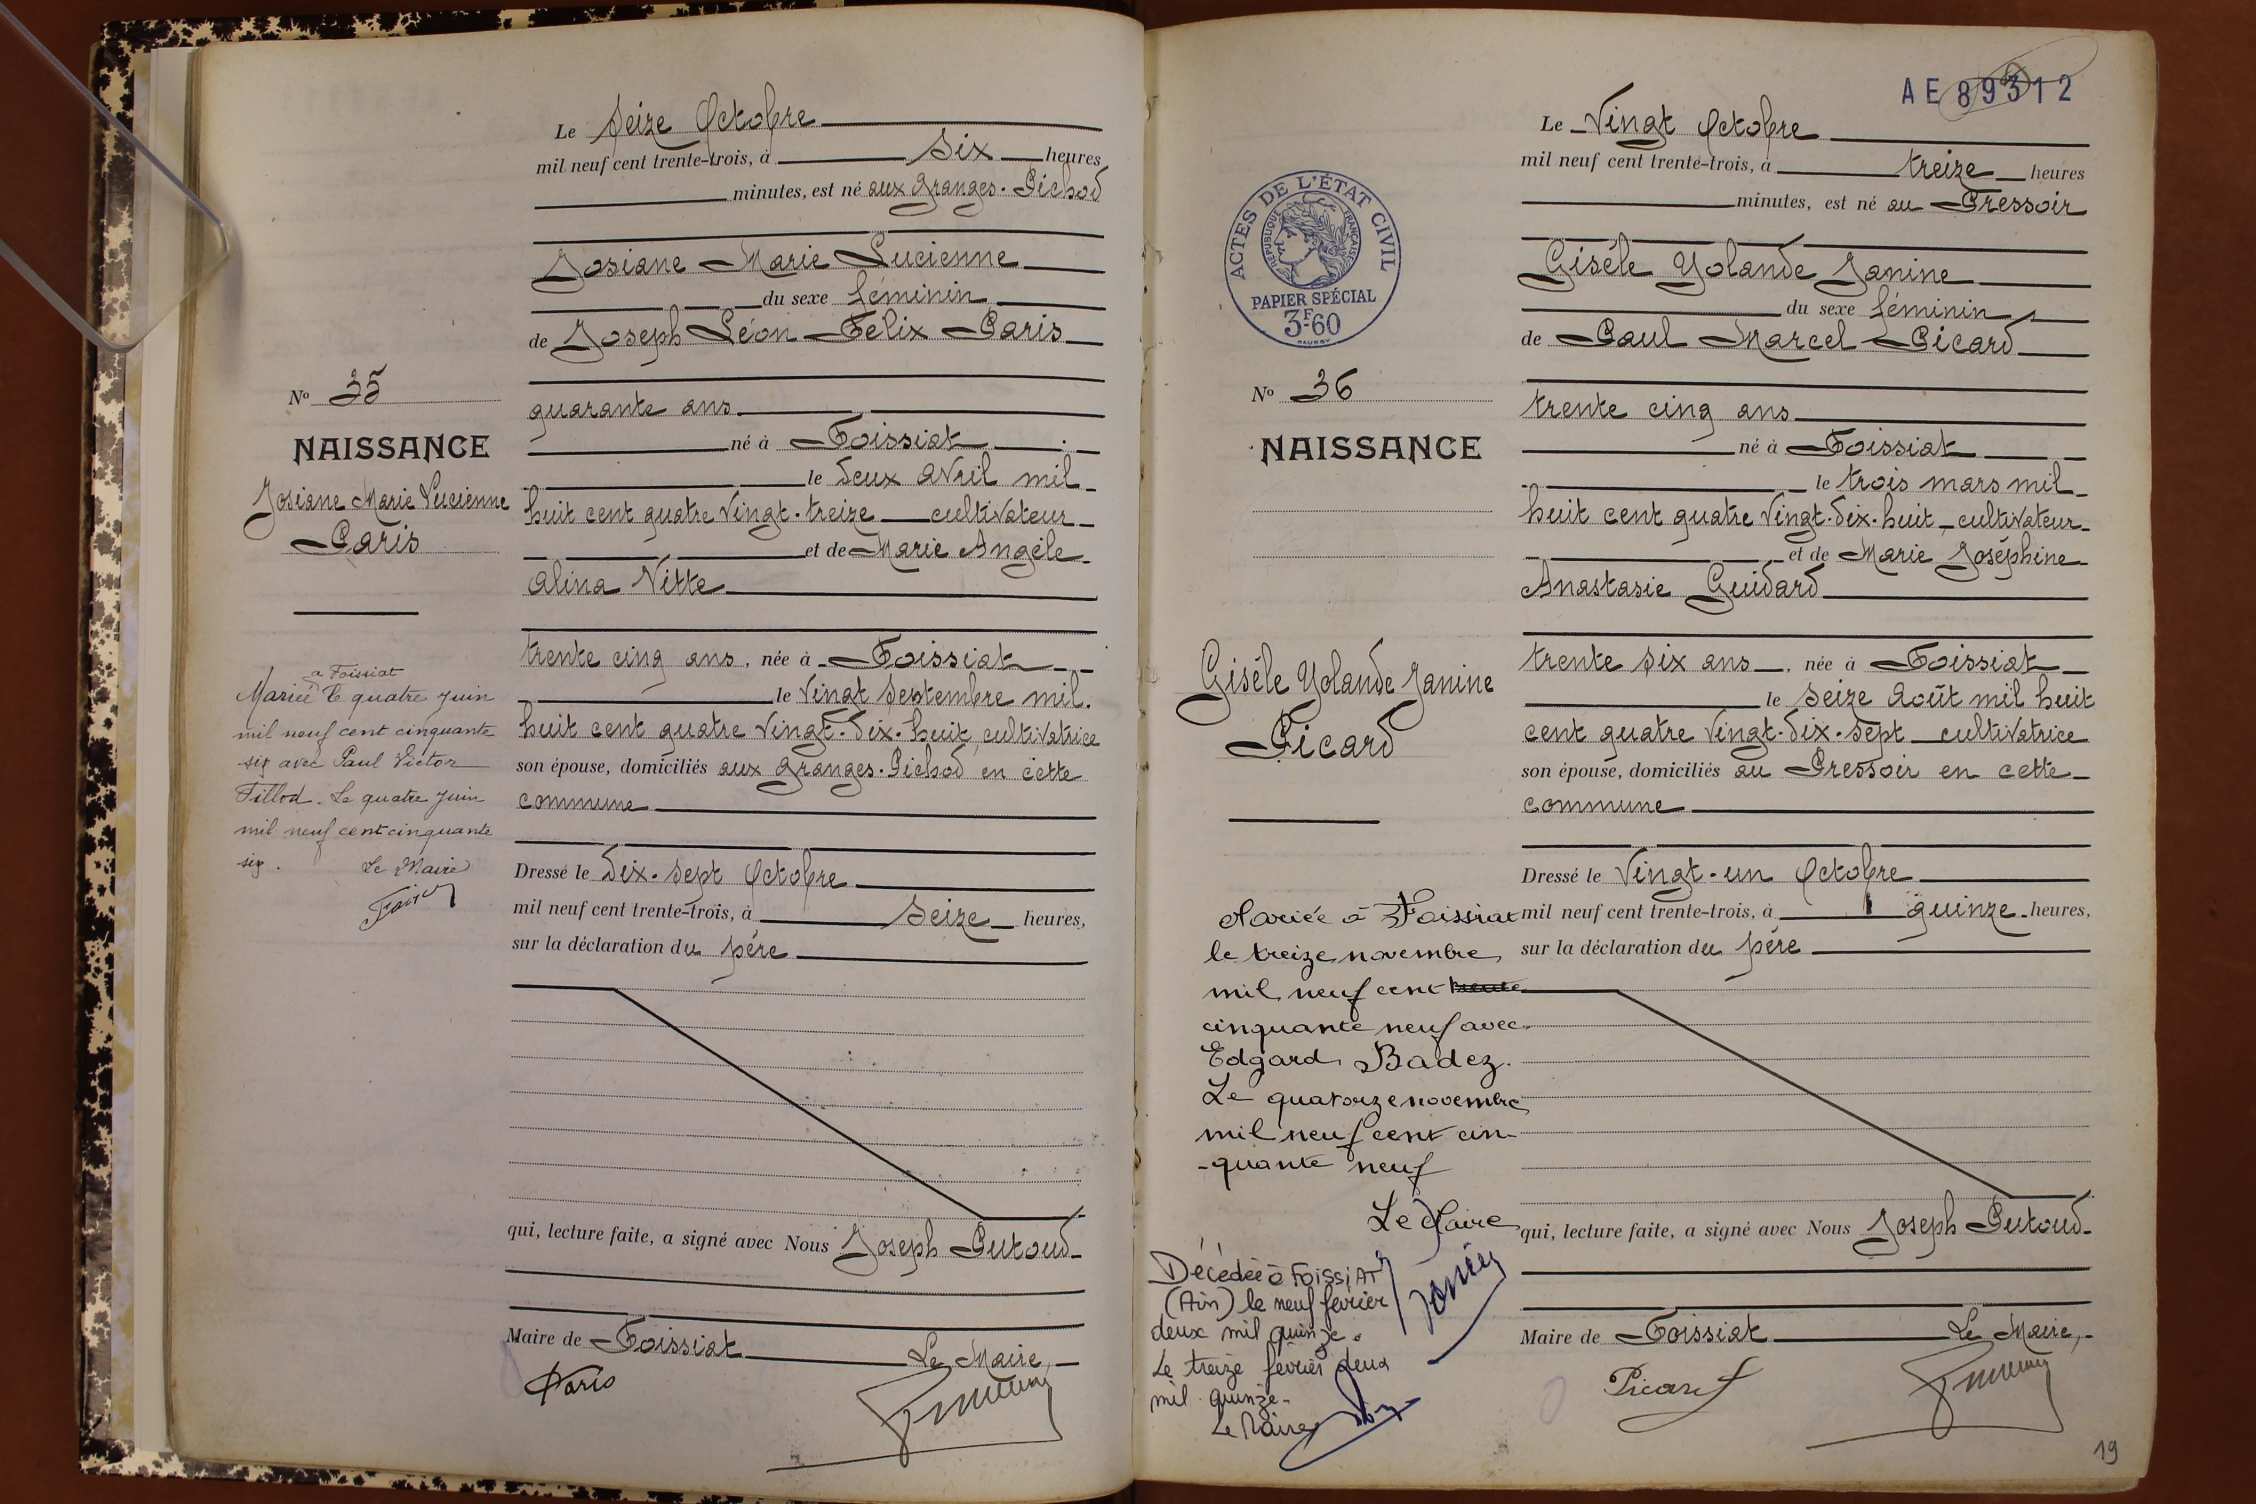 Le Seize Octobre
mil neuf cent trente-trois, à six heures
minutes, est né aux Granges-Pichod
Josiane Marie Lucienne
du sexe féminin
de Joseph Léon Félix Paris
quarante ans
né à Foissiat
le deux avril mil
huit cent quatre vingt-treize cultivateur
et de Marie Angèle
Alina Nitte
trente cinq ans, née à Foissiat
le vingt septembre mil
huit cent quatre vingt-dix-huit, cultivatrice
son épouse, domiciliés aux Granges-Pichod en cette
commune
Dressé le dix-sept Octobre
mil neuf cent trente-trois, à seize heures,
sur la déclaration du père
qui, lecture faite, a signé avec Nous Joseph Putoud
Maire de Foissiat Le Maire,
Paris
No 35
NAISSANCE
Josiane Marie Lucienne
Paris
a Foissiat
Mariée le quatre juin
mil neuf cent cinquante
six avec Paul Victor
Tillod. Le quatre juin
mil neuf cent cinquante
six. Le Maire
AE 89312
Le Vingt Octobre
mil neuf cent trente-trois, à treize heures
minutes, est né au Pressoir
Gisèle Yolande Janine
du sexe féminin
de Paul Marcel Picard
trente cinq ans
né à Foissiat
le trois mars mil
huit cent quatre vingt-dix-huit, cultivateur
et de Marie Joséphine
Anastasie Guidard
trente six ans, née à Foissiat
le seize août mil huit
cent quatre vingt-dix-sept cultivatrice
son épouse, domiciliés au Pressoir en cette
commune
Dressé le vingt-un Octobre
mil neuf cent trente-trois, à quinze heures,
sur la déclaration du père
qui, lecture faite, a signé avec Nous Joseph Putoud
Maire de Foissiat Le Maire,
Picard
ACTES DE L'ÉTAT CIVIL
RÉPUBLIQUE FRANÇAISE
PAPIER SPÉCIAL
3F60
No 36
NAISSANCE
Gisèle Yolande Janine
Picard
Mariée à Foissiat
le treize novembre
mil neuf cent trente
cinquante neuf avec
Edgard Badez.
Le quatorze novembre
mil neuf cent cin-
-quante neuf
Le Maire
Décédée à FOISSIAT
(Ain) le neuf février
deux mil quinze.
Le treize février deux
mil quinze-
Le Maire
19